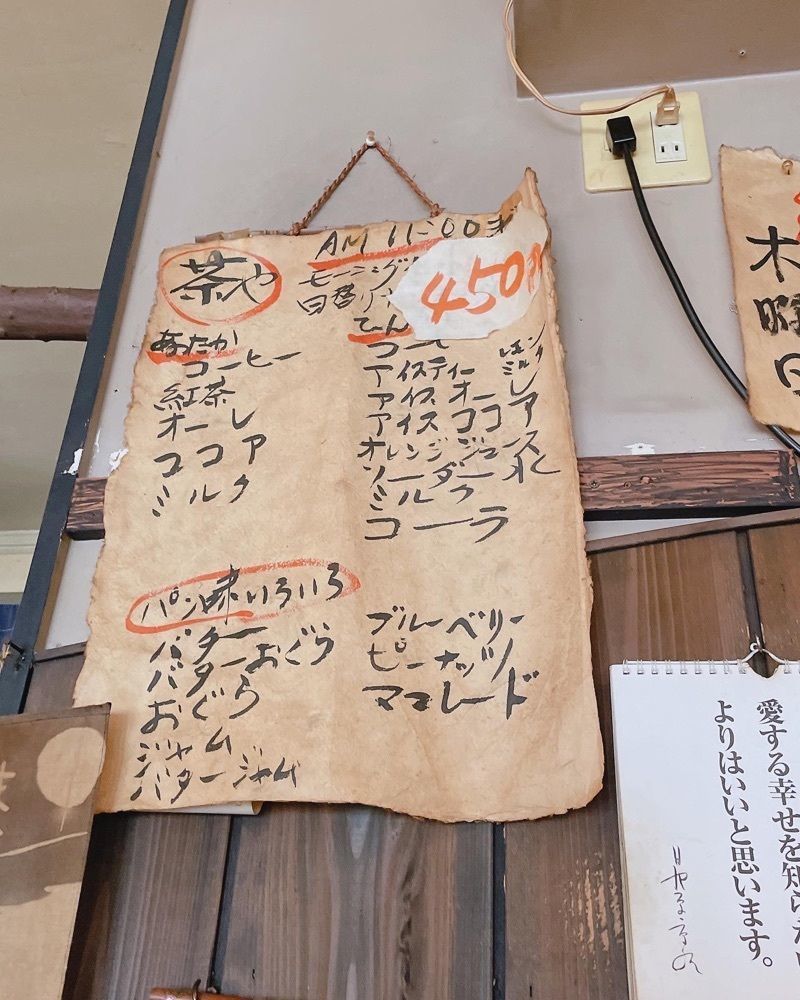 茶や
AM 11:00ま
モーニング
日替り
450円
あたたか
コーヒー
紅茶
オーレ
ココア
ミルク
アイスティー レモン ミルク
アイスオーレ
アイスココア
オレンジジュース
ソーダー水
ミルク
コーラ
パン味いろいろ
バター
バターおぐら
おぐら
ジャム
バタージャム
ブルーベリー
ピーナッツ
マーマレード
木曜日
愛する幸せを知らない
よりはいいと思います。